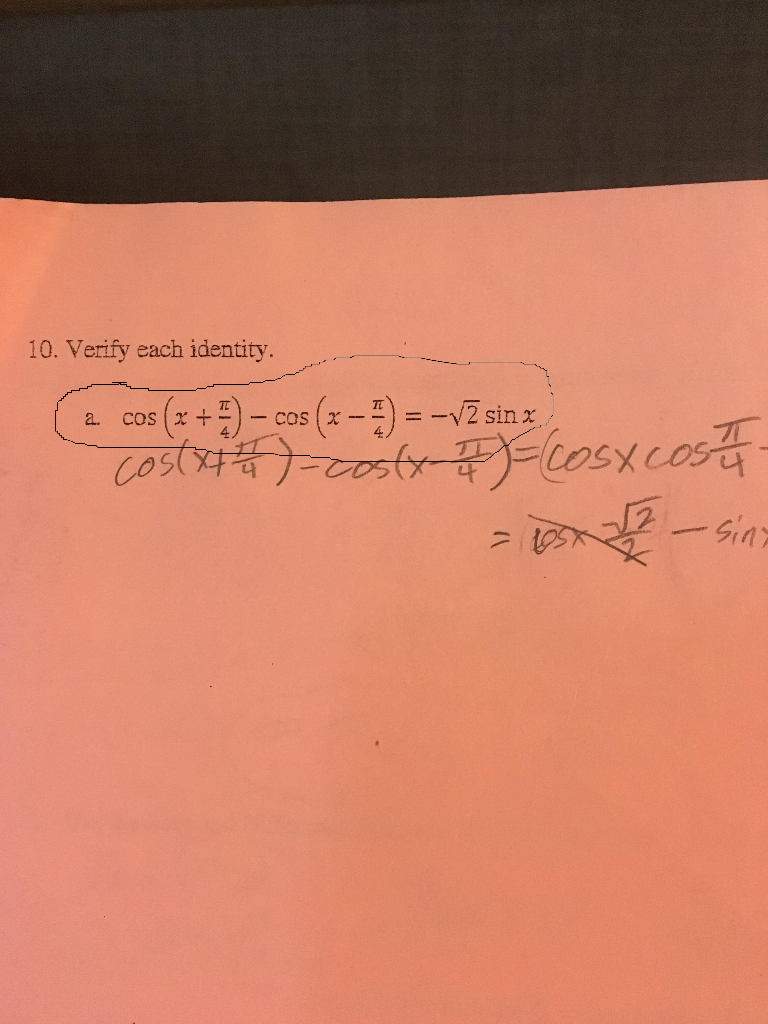 10. Verify each identity.
a. cos (x + π/4) − cos (x − π/4) = −√2 sin x
cos(x+π/4)−cos(x−π/4)=(cosx cosπ/4 -
= cosx √2/2 − sinx